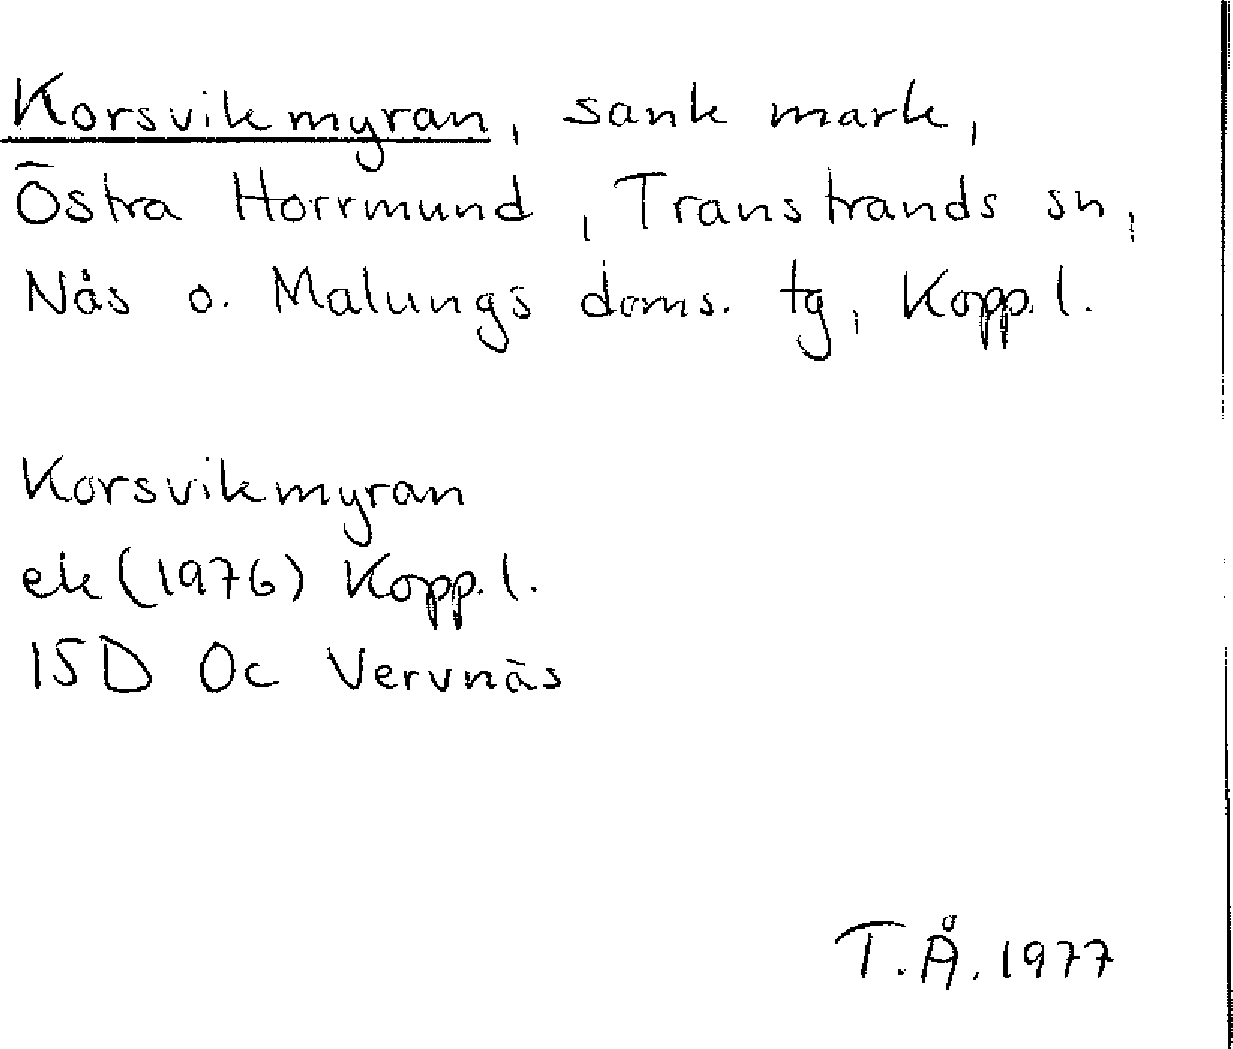 Korsvikmyran, sank mark,
Östra Horrmund, Transtrands sn,
Nås o. Malungs doms. tg, Kopp. l.
Korsvikmyran
ek (1976) Kopp. l.
15D 0c Vervnäs
T.Å. 1977